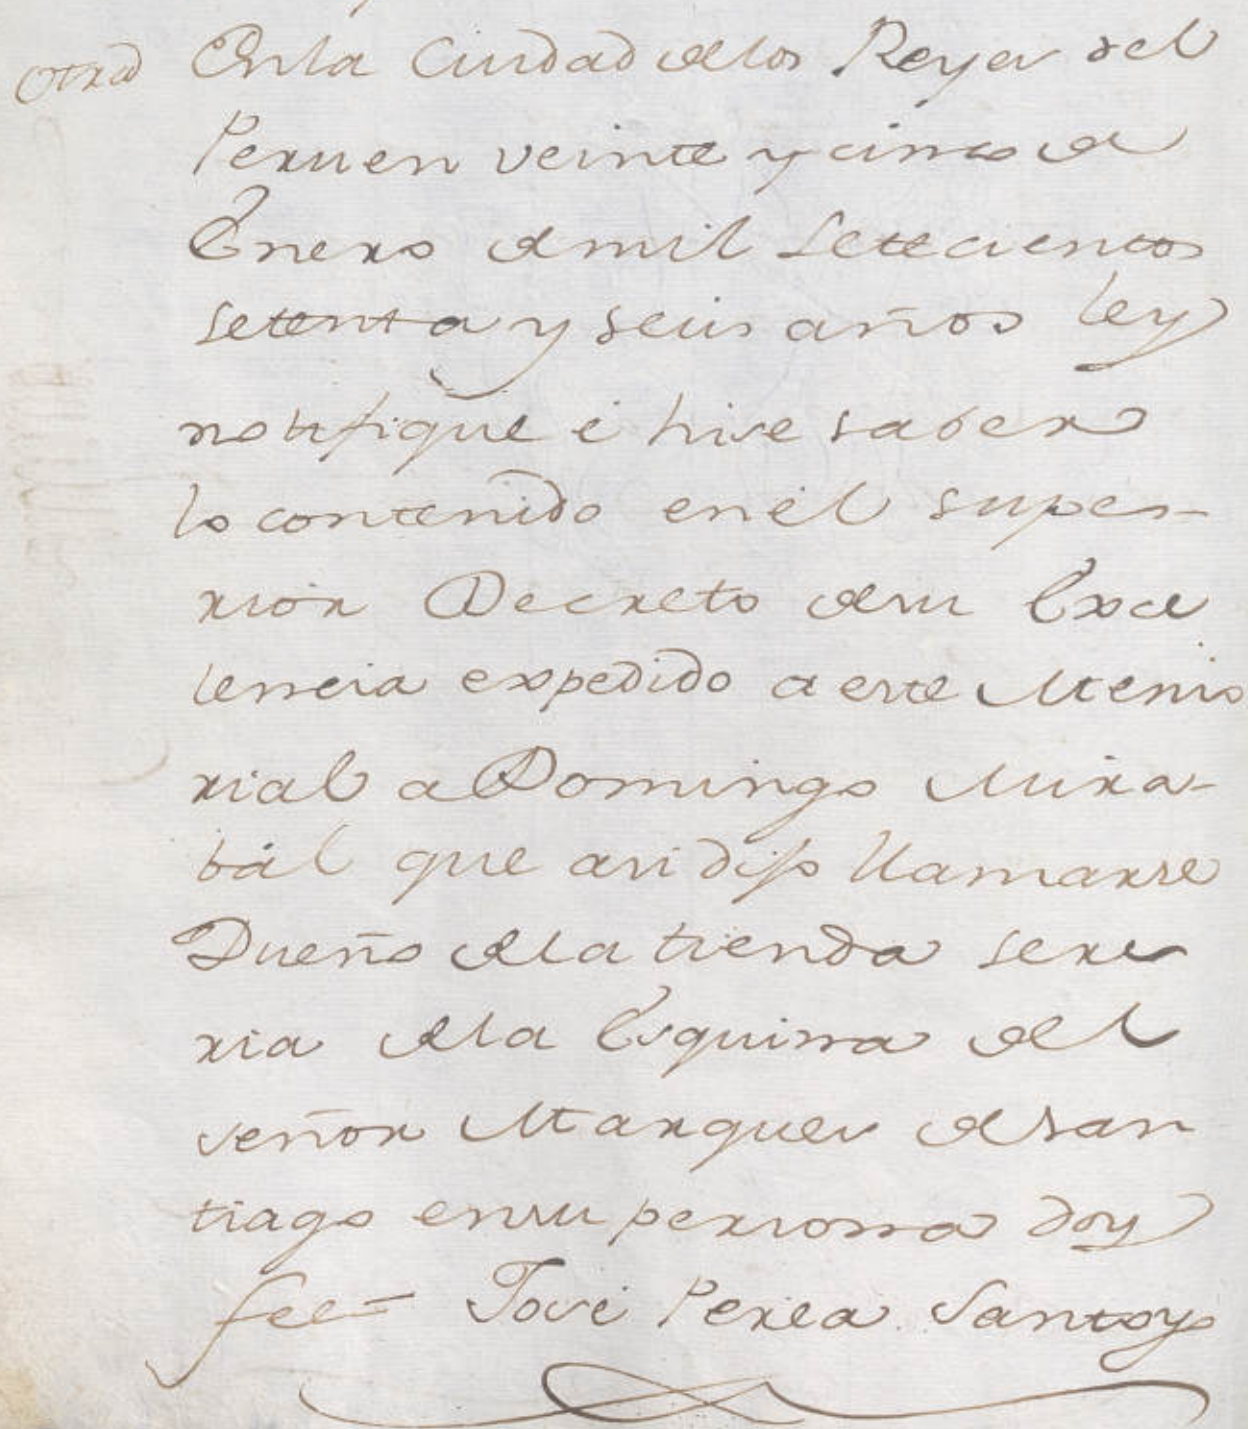 otra En la Ciudad de los Reyes del
Peru en veinte y cinco de
Enero de mil Setecientos
setenta y seis años ley
notifique é hise saber
lo contenido en él supe-
rior Decreto de su Exce
lencia expedido a este Memo
rial a Domingo Mira-
bál que asi dijo llamarse
Dueño de la tienda sere
ria de la Esquina del
señor Marques de san
tiago en su persona doy
fee = José Perea Santoyo